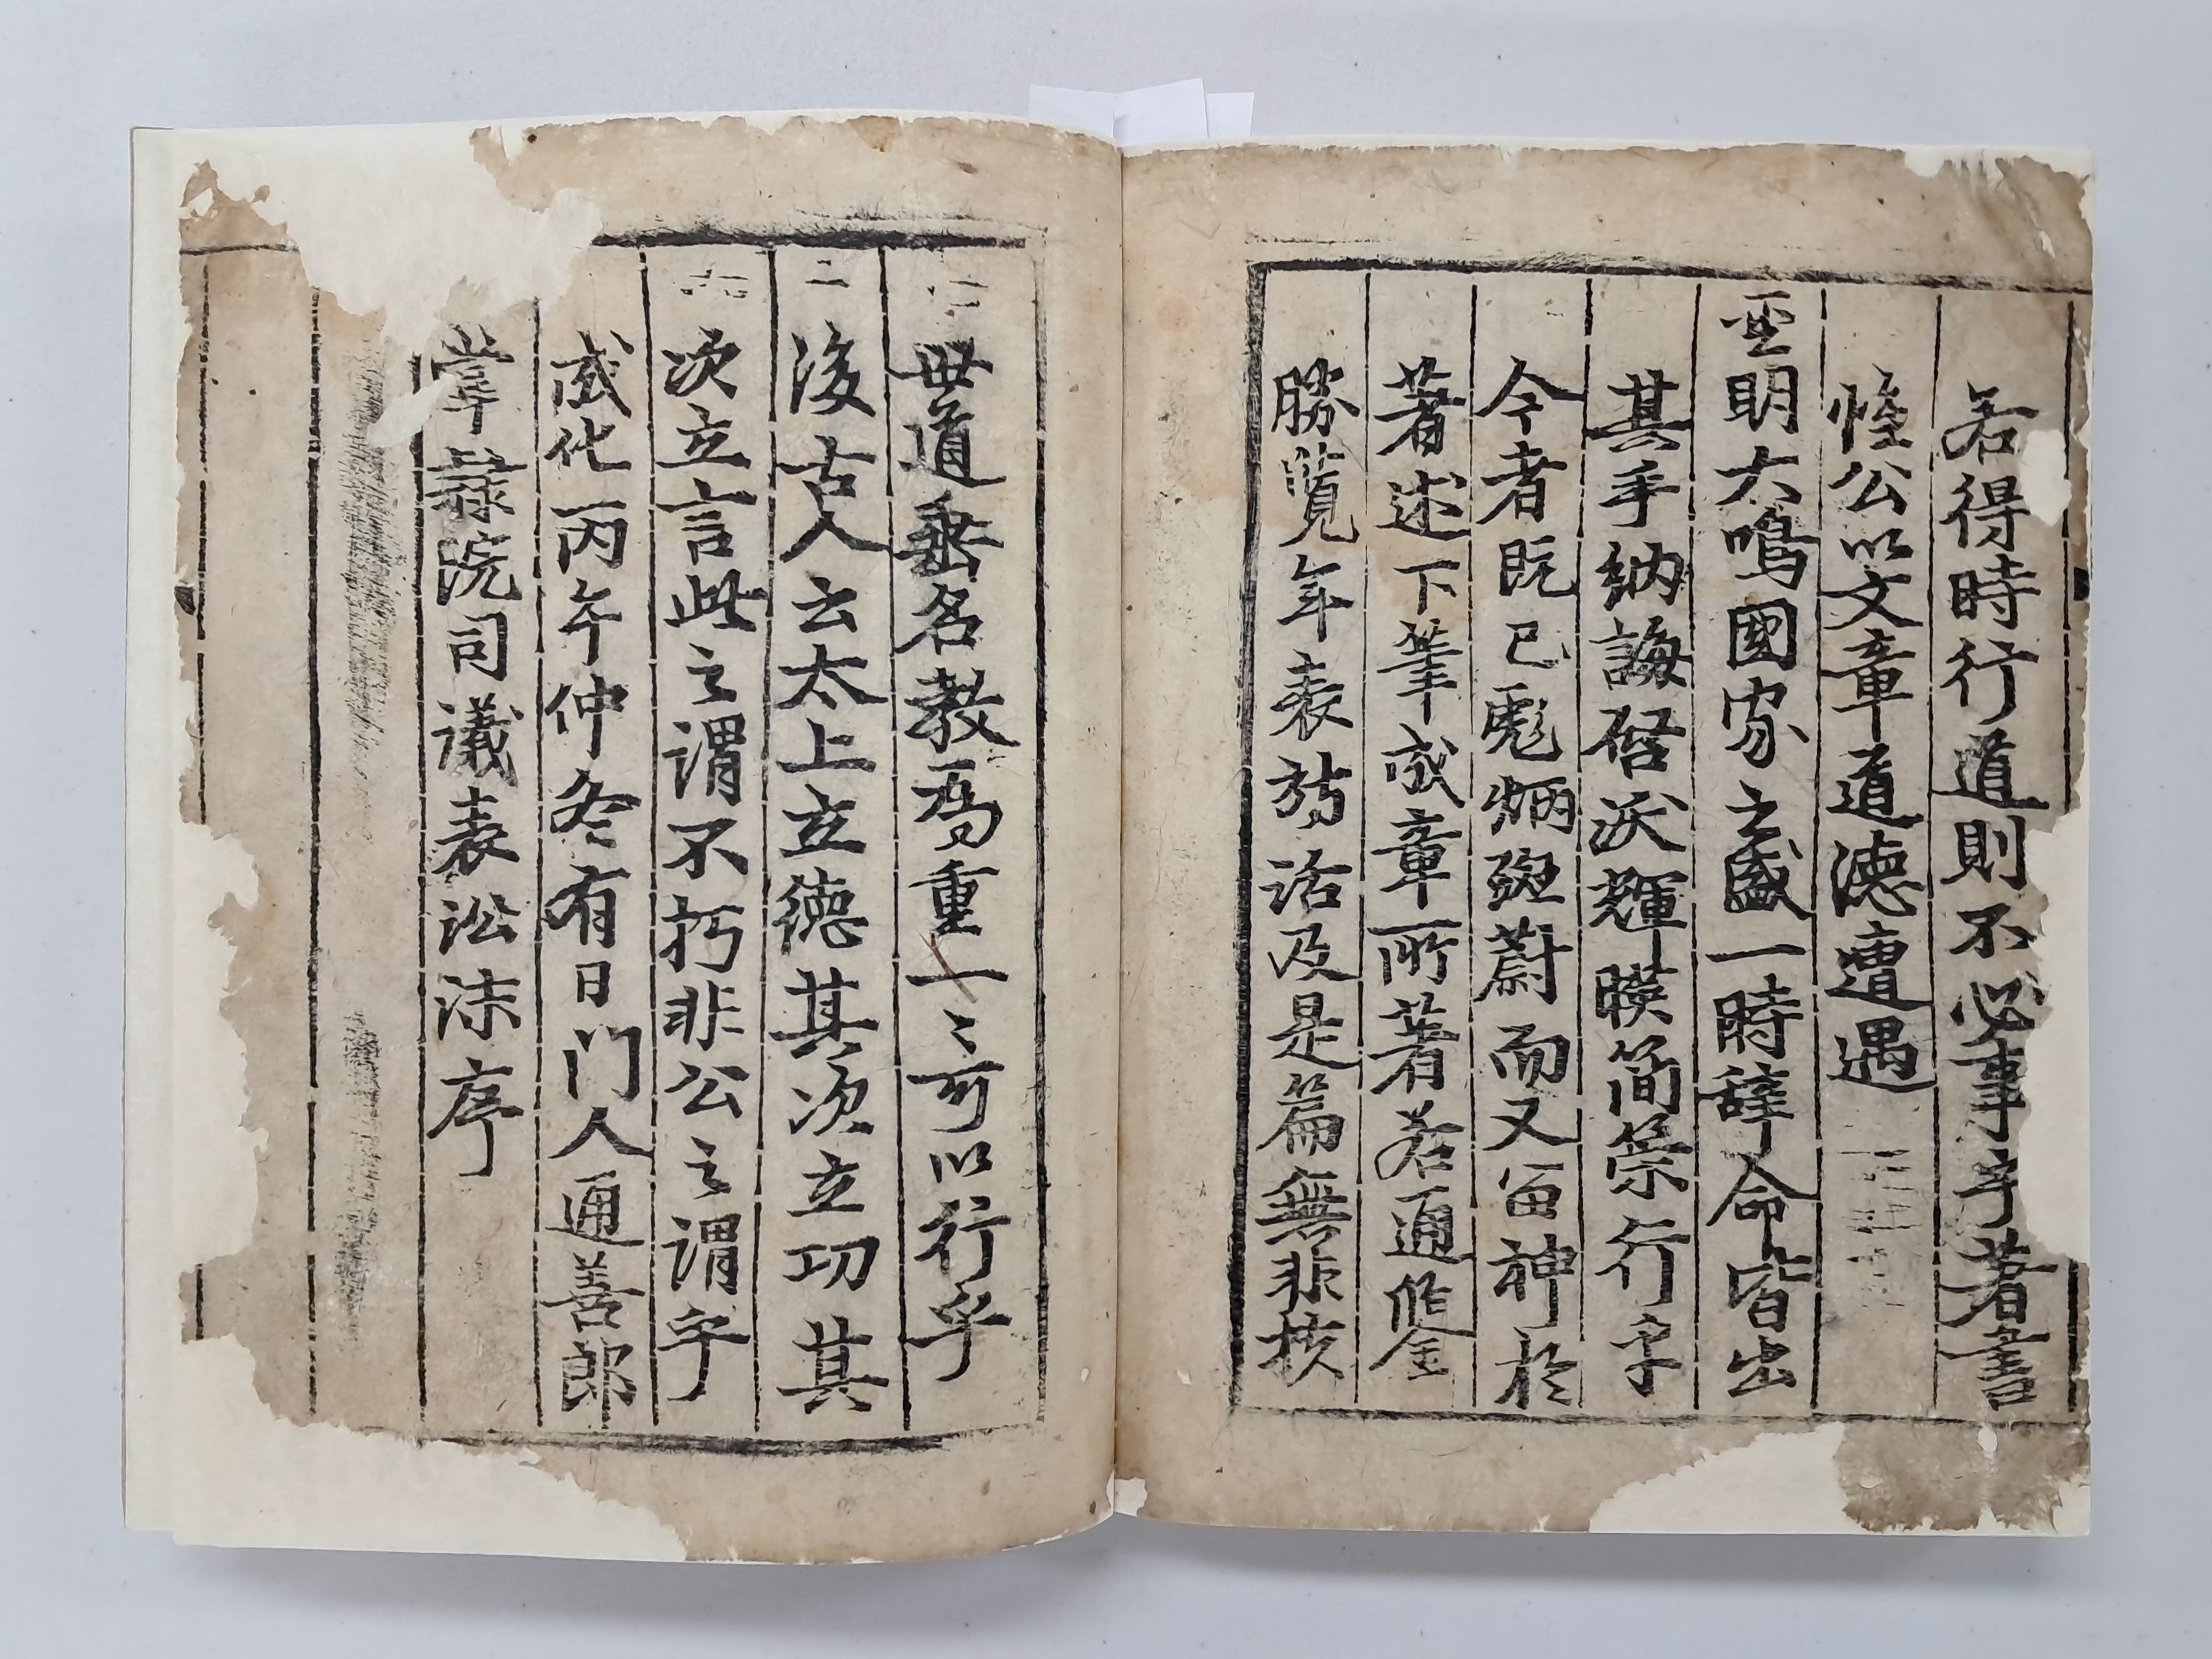 若得時行道則不必事乎著書
惟公以文章道德遭遇
聖明大鳴國家之盛一時辭命皆出
其手納誨啓沃輝暎簡策行乎
今者既已彪炳斑蔚而又留神於
著述下筆成章所著若通鑑
勝覽年表詩話及是篇無非扶
世道垂名教爲重一一可以行乎
後古人云太上立德其次立功其
次立言此之謂不朽非公之謂乎
成化丙午仲冬有日门人通善郎
掌隸院司議袁訟沫序